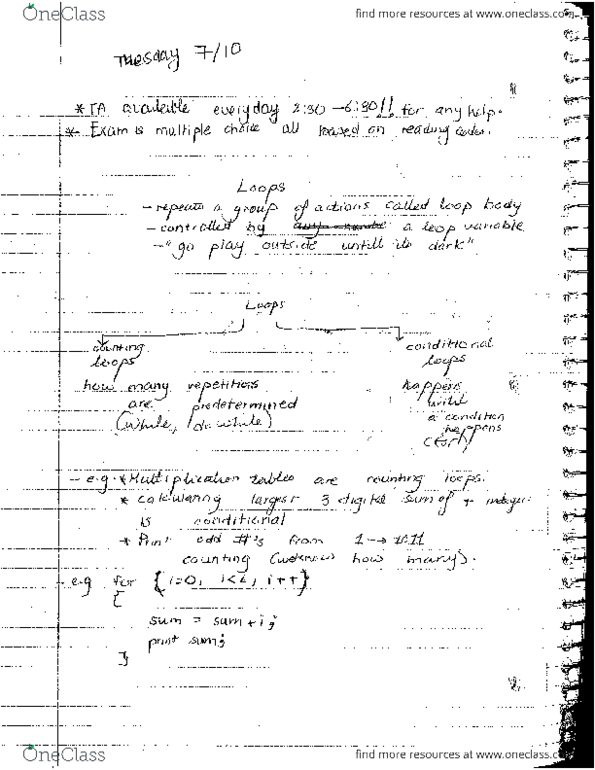 OneClass
find more resources at www.oneclass.com
Tuesday 7/10
* TA available everyday 2:30 - 6:30!! for any help.
* Exam is multiple choice all based on reading
Loops
- repeats a group of actions called loop body
- controlled by a loop variable
- "go play outside untill its dark"
Loops
counting loops
how many repetitions are predetermined
(while, do while)
conditional loops
happens until a condition happens
- e.g. * Multiplication tables are counting loops.
* calculating largest 3 digital sum of + integer
is conditional
* Print odd #'s from 1 →
counting (we know how many).
- e.g for (i=0, i<2, i++)
{
sum = sum + i;
print sum;
}
OneClass
find more resources at www.oneclass.com